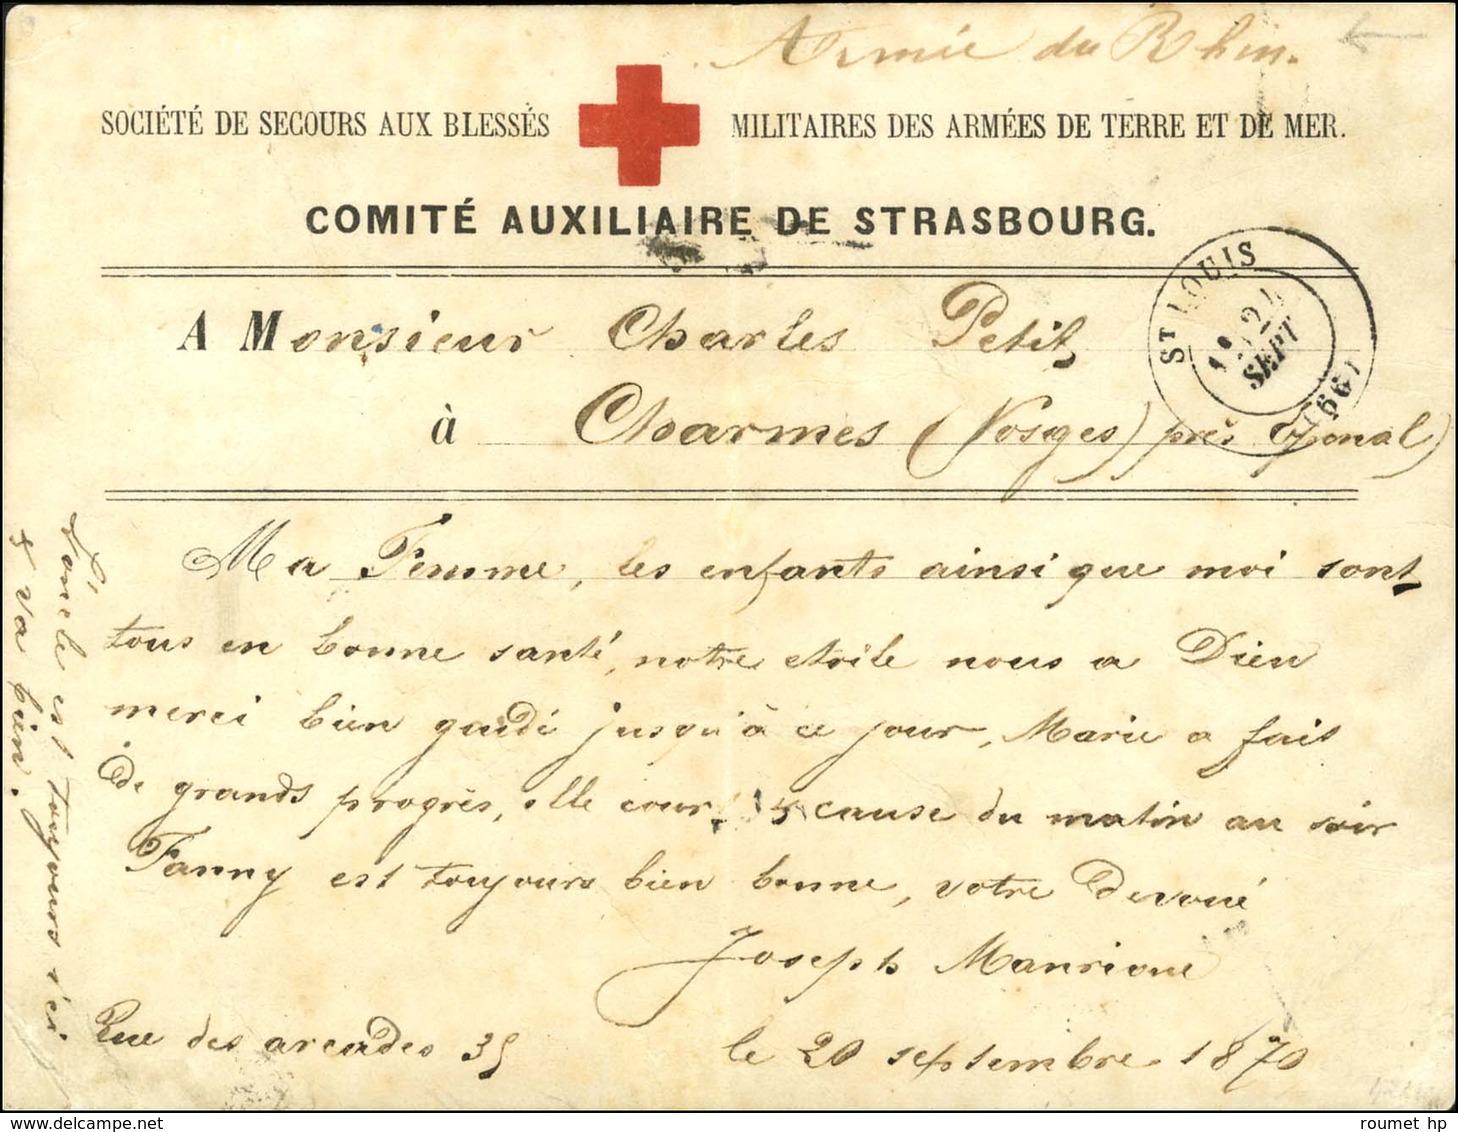 Armée du Rhin.
SOCIÉTÉ DE SECOURS AUX BLESSÉS MILITAIRES DES ARMÉES DE TERRE ET DE MER.
COMITÉ AUXILIAIRE DE STRASBOURG.
ST LOUIS
SEPT
(66)
A Monsieur Charles Petit,
à Charmes (Vosges) près Epinal)
Ma Femme, les enfants ainsi que moi sont,
tous en bonne santé, notre etoile nous a Dieu
merci bien guidé jusqu'à ce jour, Marie a fait
de grands progrès, elle cour cause du matin au soir
Fanny est toujours bien bonne, votre devoué
Joseph
Rue des arcades 35 le 20 septembre 1870
L'oncle est toujours ici
& va bien.
roumet hp